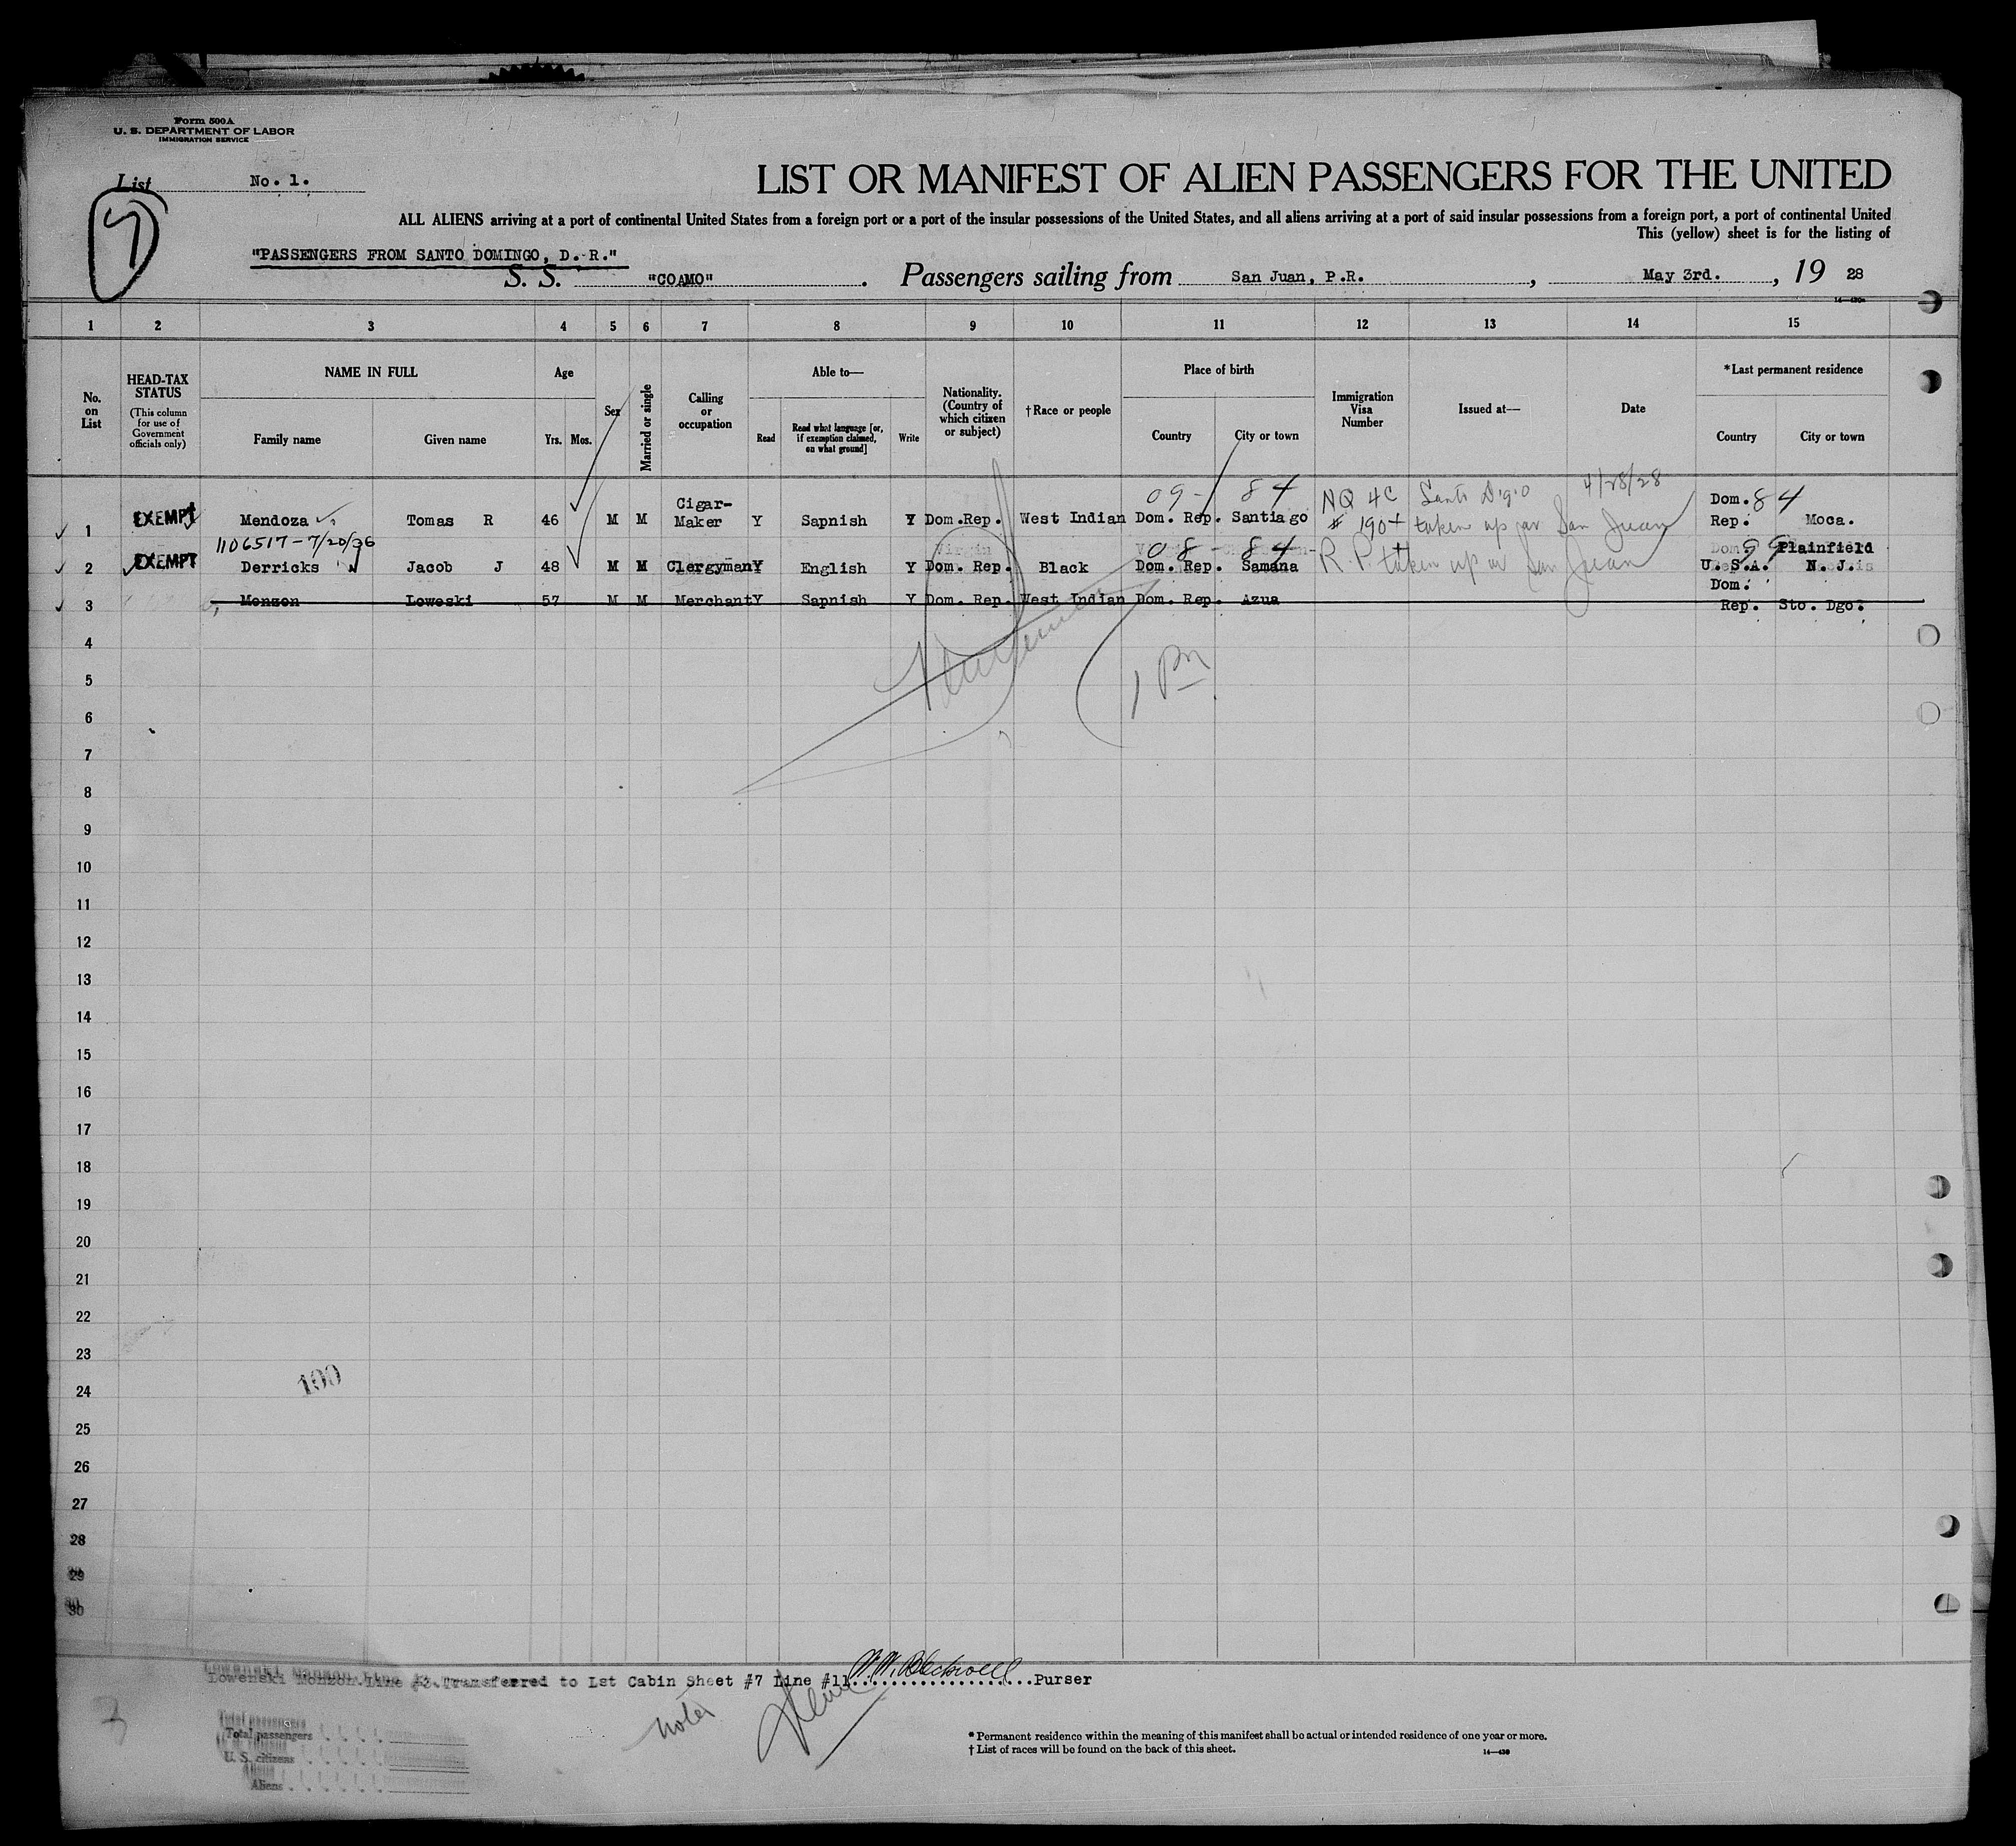 Form 500A
U. S. DEPARTMENT OF LABOR
IMMIGRATION SERVICE
List No. 1.
7
LIST OR MANIFEST OF ALIEN PASSENGERS FOR THE UNITED
ALL ALIENS arriving at a port of continental United States from a foreign port or a port of the insular possessions of the United States, and all aliens arriving at a port of said insular possessions from a foreign port, a port of continental United
This (yellow) sheet is for the listing of
"PASSENGERS FROM SANTO DOMINGO, D. R."
S. S. "COAMO" . Passengers sailing from San Juan, P.R. , May 3rd. , 19 28
1 2 3 4 5 6 7 8 9 10 11 12 13 14 15
No. on List
HEAD-TAX STATUS (This column for use of Government officials only)
NAME IN FULL Family name Given name
Age Yrs. Mos.
Sex
Married or single
Calling or occupation
Able to— Read Read what language [or, if exemption claimed, on what ground] Write
Nationality. (Country of which citizen or subject)
†Race or people
Place of birth Country City or town
Immigration Visa Number
Issued at—
Date
*Last permanent residence Country City or town
09- 84 NQ 4c Santo D'g'o 4/28/28
1 EXEMPT Mendoza Tomas R 46 M M Cigar-Maker Y Sapnish Y Dom.Rep. West Indian Dom. Rep. Santiago # 1904 taken up at San Juan Dom. Rep. 84 Moca.
1106517-7/20/36
08-84
2 EXEMPT Derricks Jacob J 48 M M Clergyman Y English Y Dom. Rep. Black Dom. Rep. Samana R.P. taken up at San Juan 99 U.S.A. Plainfield N. J.
3 Monzon Loweski 57 M M Merchant Y Sapnish Y Dom. Rep. West Indian Dom. Rep. Azua Dom. Rep. Sto. Dgo.
4
5
1 Pn
6
7
8
9
10
11
12
13
14
15
16
17
18
19
20
21
22
23
24
100
25
26
27
28
29
30
Lowenski Monzon.Line #3.Transferred to Lst Cabin Sheet #7 Line #11 ....................Purser
Total passengers
U. S. citizens
Aliens
* Permanent residence within the meaning of this manifest shall be actual or intended residence of one year or more.
† List of races will be found on the back of this sheet.
14—430